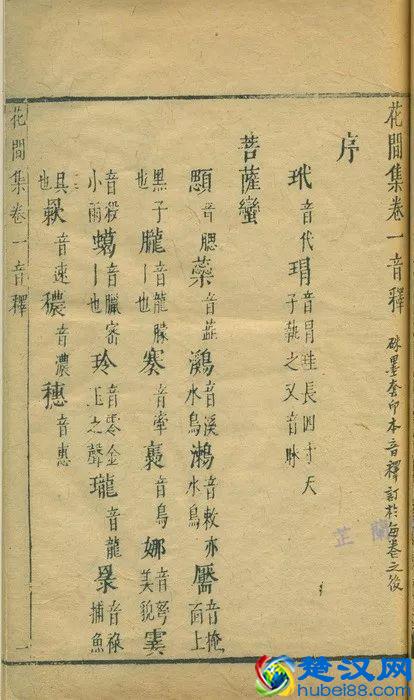 花間集卷一音釋 硃墨套印本音釋訂於每卷之後
序
玳音代瑁音冒珪長四寸天子執之又音昧
菩薩蠻
顋音腮蘂音蕊鸂音溪水鳥鶒音敕亦水鳥靨音掩面上
黑子也朧音龍朦丨也褰音牽裊音鳥娜美貌霎
音殺小雨音臘密丨也玲音零金玉之聲瓏音龍音祿捕魚
具也音速穠音濃穗音惠
花間集卷一音釋
一
蘭芷
楚汉网
hubei88.com